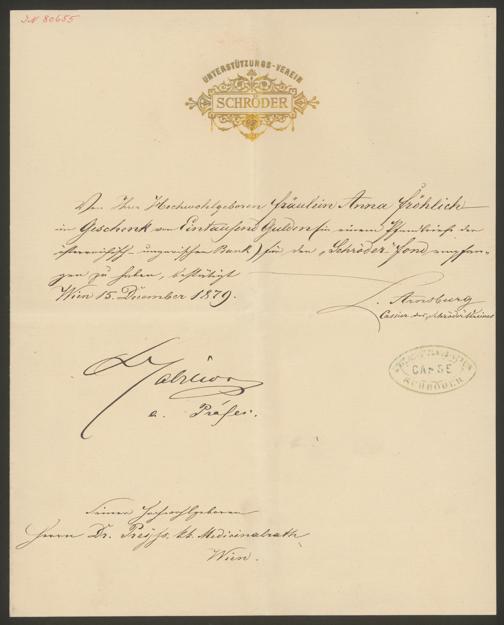 J.N 80655
UNTERSTÜTZUNGS-VEREIN
SCHRÖDER
Von Ihrer Hochwohlgeboren Fräulein Anna Fröhlich
ein Geschenk von Eintausend Gulden (in einem Pfandbriefe der
österreichisch-ungarischen Bank) für den „Schröder Fond" empfan-
gen zu haben, bestätigt
Wien 15. December 1879.
L. Arnsburg
Cassier des Schröder Vereines
CASSE
SCHRÖDER
a. Präses.
Seiner Hochwohlgeboren
Herrn Dr. Preyss, kk. Medicinalrath
Wien.